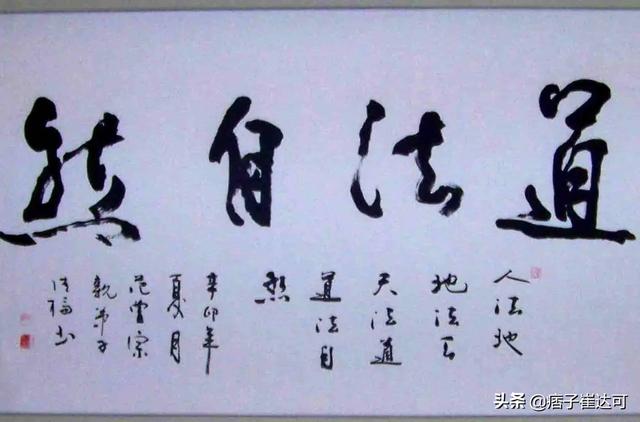 道法自然
人法地
地法天
天法道
道法自
然
辛卯年
夏月
范曾宗
親弟子
福书
头条 @痞子崔达可